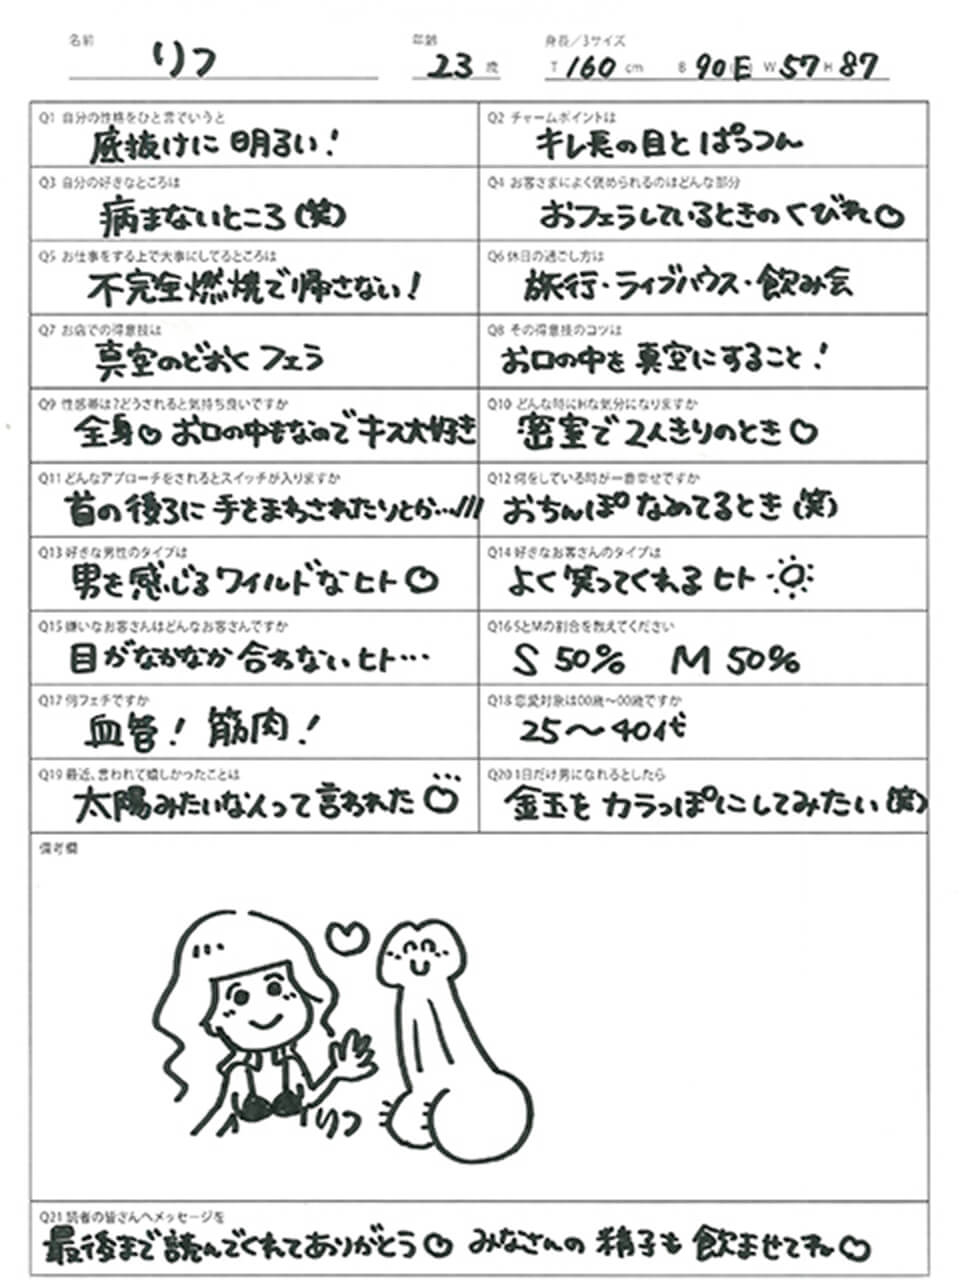 名前 りつ 年齢 23 歳 身長/3サイズ T 160 cm B 90 E W 57 H 87
Q1 自分の性格をひと言でいうと
底抜けに明るい!
Q2 チャームポイントは
キレ長の目とぱっつん
Q3 自分の好きなところは
病まないところ(笑)
Q4 お客さまによく褒められるのはどんな部分
おフェラしているときのくびれ♡
Q5 お仕事をする上で大事にしてるところは
不完全燃焼で帰さない!
Q6 休日の過ごし方は
旅行・ライブハウス・飲み会
Q7 お店での得意技は
真空のどおくフェラ
Q8 その得意技のコツは
お口の中を真空にすること!
Q9 性感帯は?どうされると気持ち良いですか
全身♡お口の中もなのでキス大好き
Q10 どんな時にHな気分になりますか
密室で2人きりのとき♡
Q11 どんなアプローチをされるとスイッチが入りますか
首の後ろに手をまわされたりとか…///
Q12 何をしている時が一番幸せですか
おちんぽなめてるとき(笑)
Q13 好きな男性のタイプは
男を感じるワイルドなヒト♡
Q14 好きなお客さんのタイプは
よく笑ってくれるヒト
Q15 嫌いなお客さんはどんなお客さんですか
目がなかなか合わないヒト…
Q16 SとMの割合を教えてください
S 50% M 50%
Q17 何フェチですか
血管!筋肉!
Q18 恋愛対象は00歳〜00歳ですか
25〜40代
Q19 最近、言われて嬉しかったことは
太陽みたいな人って言われた
Q20 1日だけ男になれるとしたら
金玉をカラっぽにしてみたい(笑)
備考欄
りつ
Q21 読者の皆さんへメッセージを
最後まで読んでくれてありがとう♡ みなさんの精子も飲ませてネ♡